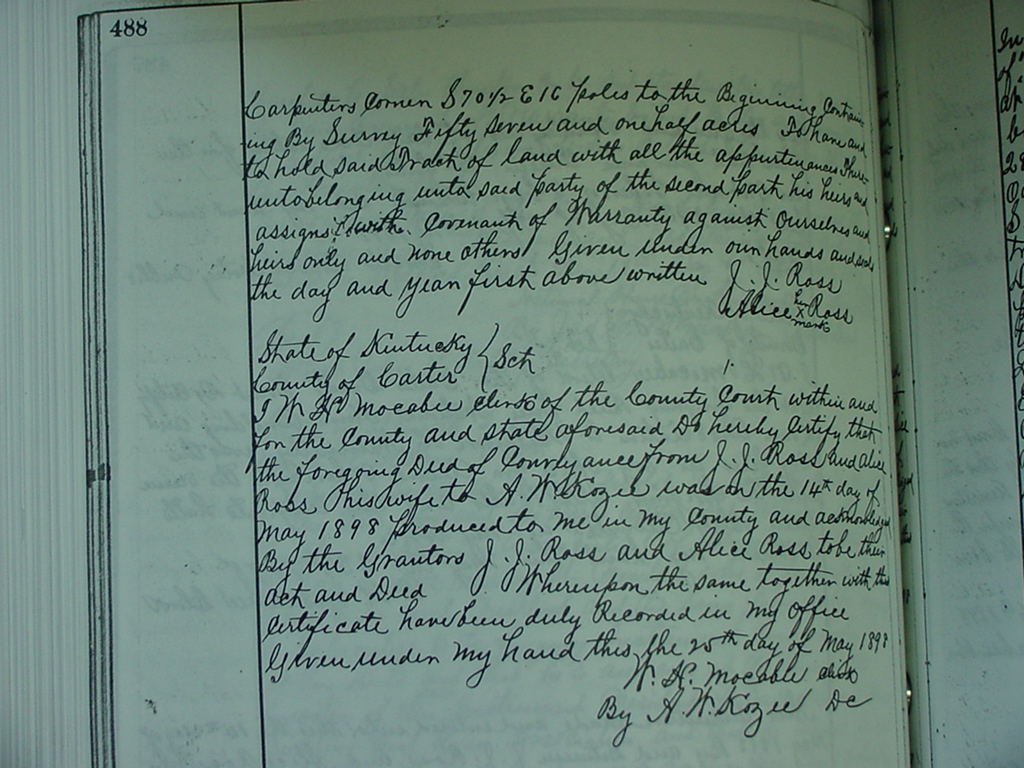 488
Carpinters Corner S 70 1/2 E 16 poles to the Biginning Contain
ing By Survey Fifty Seven and one half acres To have and
to hold said Tract of land with all the appurtenances There
unto belonging unto said party of the second part his heirs and
assigns with Covenant of Warranty against Ourselves and
heirs only and none others Given under our hands and seals
the day and year first above written J. J. Ross
Alice her x mark Ross
State of Kentucky } Sct
County of Carter
I W. H. Mocabee Clerk of the County Court within and
for the County and state aforesaid Do hereby Certify that
the foregoing Deed of Conveyance from J. J. Ross and Alice
Ross his wife to A. W. Kozee was on the 14th day of
May 1898 produced to me in my County and acknowledged
By the Grantors J. J. Ross and Alice Ross to be their
act and Deed Whereupon the same together with this
Certificate have been duly Recorded in my office
Given under my hand this the 25th day of May 1898
W. H. Mocabee Clerk
By A. W. Kozee DC